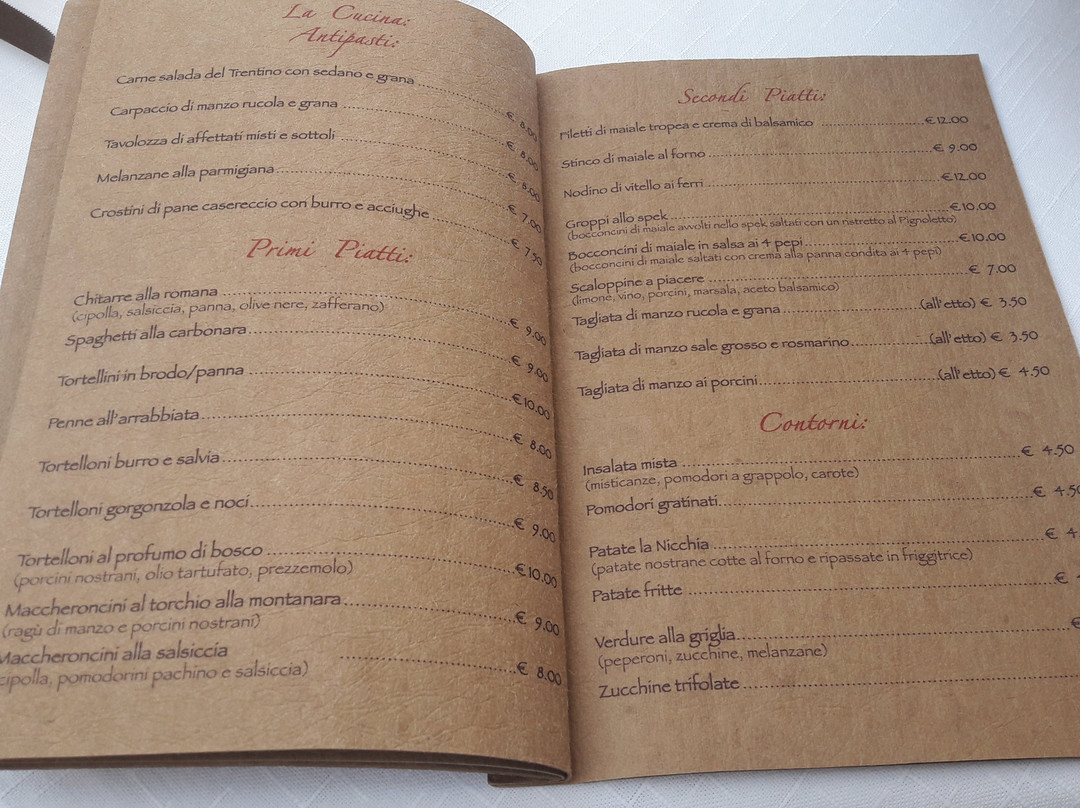 La Cucina:
Antipasti:
Carne salada del Trentino con sedano e grana € 8.00
Carpaccio di manzo rucola e grana € 8.00
Tavolozza di affettati misti e sottoli € 8.00
Melanzane alla parmigiana € 7.00
Crostini di pane casereccio con burro e acciughe € 7.50
Primi Piatti:
Chitarre alla romana € 9.00
(cipolla, salsiccia, panna, olive nere, zafferano)
Spaghetti alla carbonara € 9.00
Tortellini in brodo/panna €10.00
Penne all'arrabbiata € 8.00
Tortelloni burro e salvia € 8.50
Tortelloni gorgonzola e noci € 9.00
Tortelloni al profumo di bosco €10.00
(porcini nostrani, olio tartufato, prezzemolo)
Maccheroncini al torchio alla montanara € 9.00
(ragù di manzo e porcini nostrani)
Maccheroncini alla salsiccia € 8.00
cipolla, pomodorini pachino e salsiccia)
Secondi Piatti:
Filetti di maiale tropea e crema di balsamico €12.00
Stinco di maiale al forno € 9.00
Nodino di vitello ai ferri €12.00
Groppi allo spek €10.00
(bocconcini di maiale avvolti nello spek saltati con un ristretto al Pignoletto)
Bocconcini di maiale in salsa ai 4 pepi €10.00
(bocconcini di maiale saltati con crema alla panna condita ai 4 pepi)
Scaloppine a piacere € 7.00
(limone, vino, porcini, marsala, aceto balsamico)
Tagliata di manzo rucola e grana (all'etto) € 3.50
Tagliata di manzo sale grosso e rosmarino (all'etto) € 3.50
Tagliata di manzo ai porcini (all'etto) € 4.50
Contorni:
Insalata mista € 4.50
(misticanze, pomodori a grappolo, carote)
Pomodori gratinati € 4.50
Patate la Nicchia € 4.
(patate nostrane cotte al forno e ripassate in friggitrice)
Patate fritte €
Verdure alla griglia €
(peperoni, zucchine, melanzane)
Zucchine trifolate